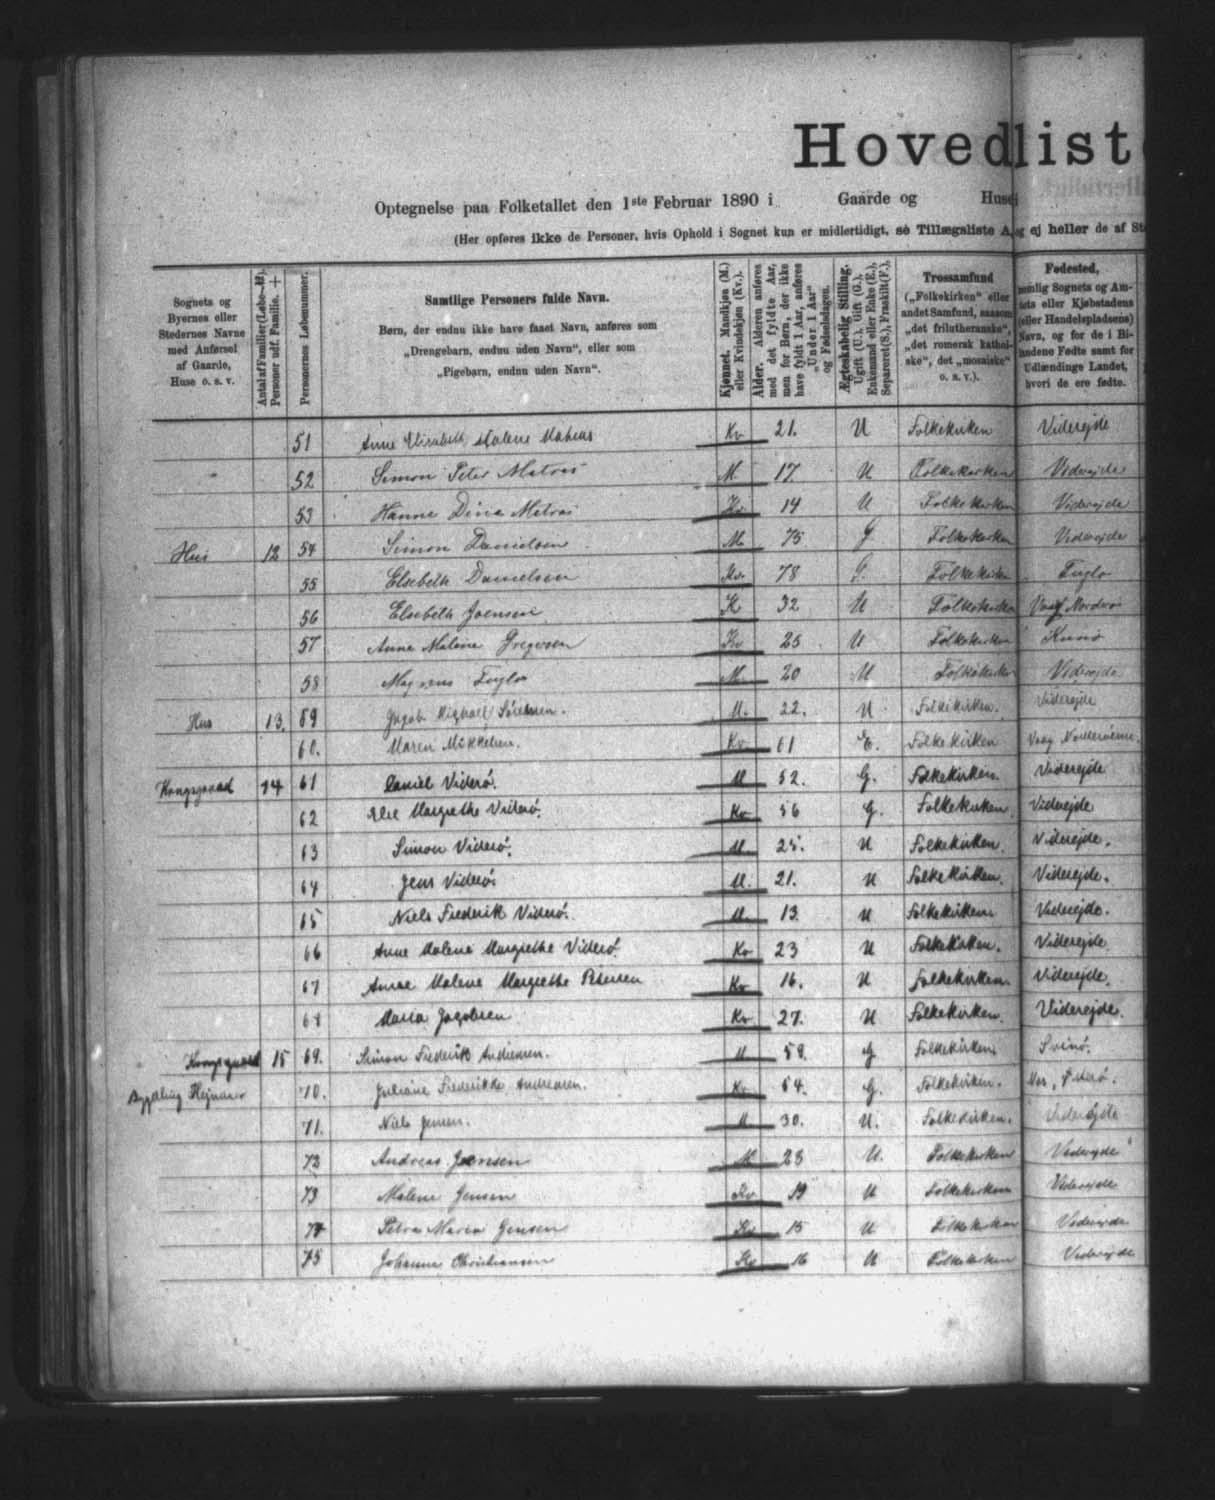 Hovedlist
Optegnelse paa Folketallet den 1ste Februar 1890 i Gaarde og Huse i
(Her opføres ikke de Personer, hvis Ophold i Sognet kun er midlertidigt, se Tillægsliste A, og ej heller de af St
Sognets og Byernes eller Stedernes Navne med Anførsel af Gaarde, Huse o. s. v.
Antal af Familier (Løbe-№). Personer udf. Familie. +
Personernes Løbenummer.
Samtlige Personers fulde Navn.
Børn, der endnu ikke have faaet Navn, anføres som „Drengebarn, endnu uden Navn“, eller som „Pigebarn, endnu uden Navn“.
Kjønnet. Mandkjøn (M.) eller Kvindekjøn (Kv.).
Alder. Alderen anføres med det fyldte Aar, men for Børn, der ikke have fyldt 1 Aar, anføres „Under 1 Aar“ og Fødselsdagen.
Ægteskabelig Stilling. Ugift (U.), Gift (G.), Enkemand eller Enke (E.), Separeret (S.), Fraskilt (F.).
Trossamfund („Folkekirken“ eller andet Samfund, saasom „det frilutheranske“, „det romersk katholske“, det „mosaiske“ o. s. v.).
Fødested, nemlig Sognets og Amtets eller Kjøbstadens (eller Handelspladsens) Navn, og for de i Bilandene Fødte samt for Udlændinge Landet, hvori de ere fødte.
51 Anne Elisabeth Malene Matras Kv 21. U Folkekirken Viderejde
52 Simon Peter Matras M 17 U Folkekirken Viderejde
53 Hanne Dina Matras Kv 14 U Folkekirken Viderejde
Hus 12 54 Simon Danielsen M 75 G Folkekirken Viderejde
55 Elsebeth Danielsen Kv 78 G. Folkekirken Fuglø
56 Elsebeth Joensen K 32 U Folkekirken Vaag Norderø
57 Anne Malene Gregersen Kv 25 U Folkekirken Kunø
58 Magnus Fuglø M 20 U Folkekirken Viderejde
Hus 13. 59 Jagob Michael Sørensen. M. 22. U Folkekirken. Viderejde
60. Maren Mikkelsen. Kv. 61 E. Folkekirken Vaag Norderøerne.
Kongsgaard 14 61 Daniel Viderø. M 52. G. Folkekirken. Viderejde
62 Else Margrethe Viderø. Kv. 56 G. Folkekirken. Viderejde
63 Simon Viderø. M. 25. U Folkekirken. Viderejde.
64 Jens Viderø. M. 21. U Folkekirken. Viderejde.
65 Niels Frederik Viderø. M. 13. U Folkekirken. Viderejde.
66 Anne Malene Margrethe Viderø. Kv 23 U Folkekirken. Viderejde.
67 Anne Malene Margrethe Petersen Kv 16. U Folkekirken. Viderejde.
68 Maria Jagobsen Kv. 27. U Folkekirken. Viderejde.
Kongsgaard 15 69. Simon Frederik Andreasen. M 59. G Folkekirken Svinø.
Bygdling 70. Juliane Frederikke Andreasen. Kv. 54. G. Folkekirken.
71. Niels Jensen. M. 30. U. Folkekirken. Viderejde
72 Andreas Joensen M 23 U. Folkekirken Viderejde
73 Malene Jensen Kv. 19 U Folkekirken Viderejde
74 Petra Maria Jensen Kv 15 U Folkekirken Viderejde
75 Johanne Christiansen Kv 16 U Folkekirken Viderejde